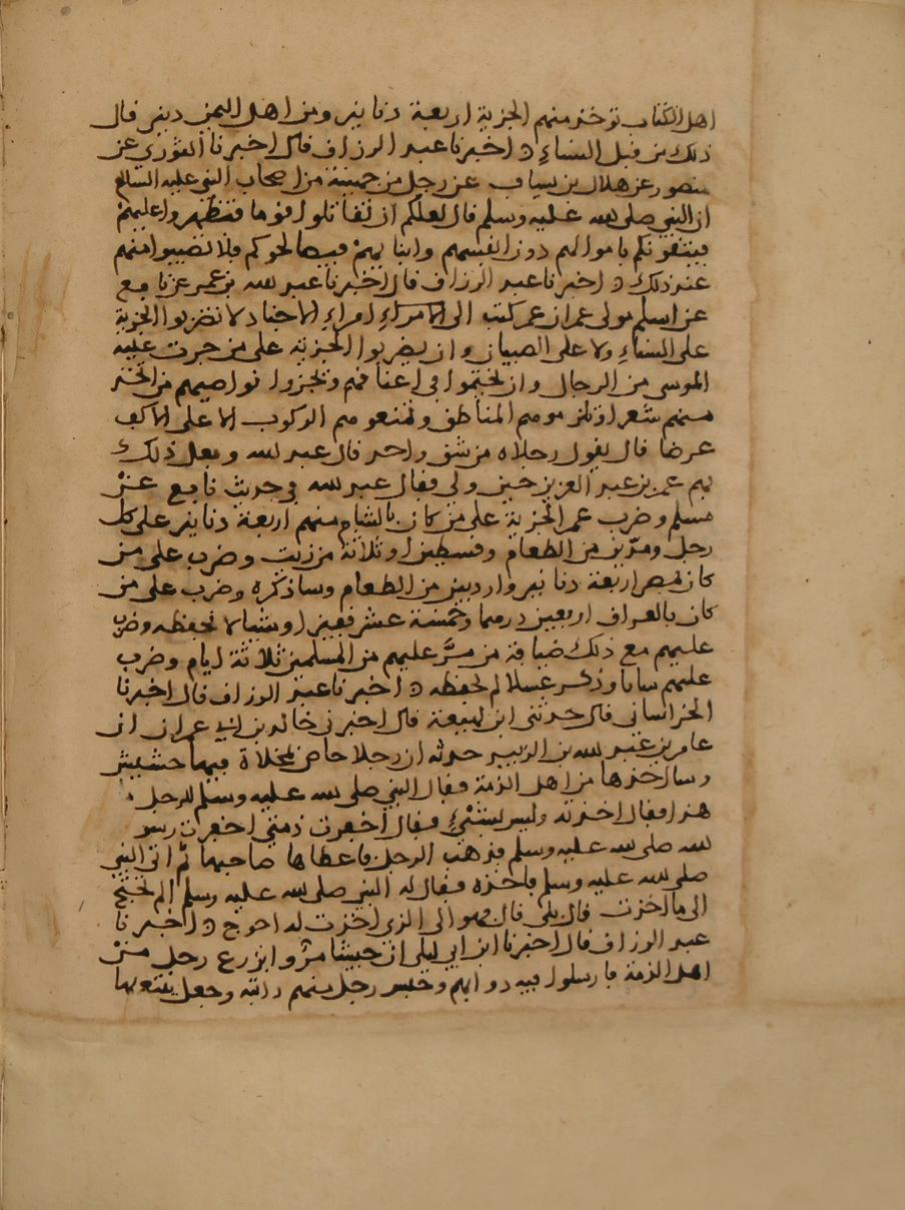 اهل الكتاب توخذ منهم الجزية اربعة دنانير ومن اهل اليمن دينر قال
ذلك من قبل اليسار ه اخبرنا عبد الرزاق قال اخبرنا الثوري عن
منصور عن هلال بن يساف عن رجل من جهينة من اصحاب النبي عليه السلام
ان النبي صلى الله عليه وسلم قال لعلكم ان تقاتلوا قوما فتظهروا عليهم
فيتقونكم باموالهم دون انفسهم وابنايهم فيصالحوكم فلا تصيبوا منهم
غير ذلك ه اخبرنا عبد الرزاق قال اخبرنا عبد الله بن عمر عن نافع
عن اسلم مولى عمر ان عمر كتب الى الامراء امراء الاجناد لا تضربوا الجزية
على النساء ولا على الصبيان وان يضربوا الجزية على من جرت عليه
الموسى من الرجال وان يختموا في اعناقهم وتجزوا نواصيهم من اتخذ
منهم شعرا وتلزموهم المناطق وتمنعوهم الركوب الا على الاكف
عرضا قال يقول رجلاه من شق واحد قال عبد الله وفعل ذلك
بهم عمر بن عبد العزيز حين ولي فقال عبد الله في حديث نافع عن
اسلم وضرب عمر الجزية على من كان بالشام منهم اربعة دنانير على كل
رجل ومدين من الطعام وقسطين او ثلاثة من زيت وضرب على من
كان بمصر اربعة دنانير واردبين من الطعام وسا ذكره وضرب على من
كان بالعراق اربعين درهما وخمسة عشر قفيزا وشيا لا نحفظه وضرب
عليهم مع ذلك ضيافة من مر عليهم من المسلمين ثلاثة ايام وضرب
عليهم ثيابا وذكر عسلا لم نحفظه ه اخبرنا عبد الرزاق قال اخبرنا
الخراساني قال حدثني ابن لهيعة قال اخبرني خالد بن ابي عمران ان
عامر بن عبد الله بن الزبير حدثه ان رجلا جاء بمخلاة فيها حشيش
وسار خذها من اهل الذمة فقال النبي صلى الله عليه وسلم للرجل
هذا فقال اخذته وليس بشيء فقال اخفرت ذمتي اخفرت رسو
لله صلى الله عليه وسلم فذهب الرجل فاعطاها صاحبها ثم اتى النبي
صلى الله عليه وسلم فاخذه فقال له النبي صلى الله عليه وسلم الم تحتج
الى ما اخذت قال بلى قال فهو الى الذي اخذت له احوج ه اخبرنا
عبد الرزاق قال اخبرنا ابن ابي ليلى ان جيشا مروا بزرع رجل من
اهل الذمة فارسلوا فيه دوابهم وحبس رجل منهم دابته وجعل يتبع بها